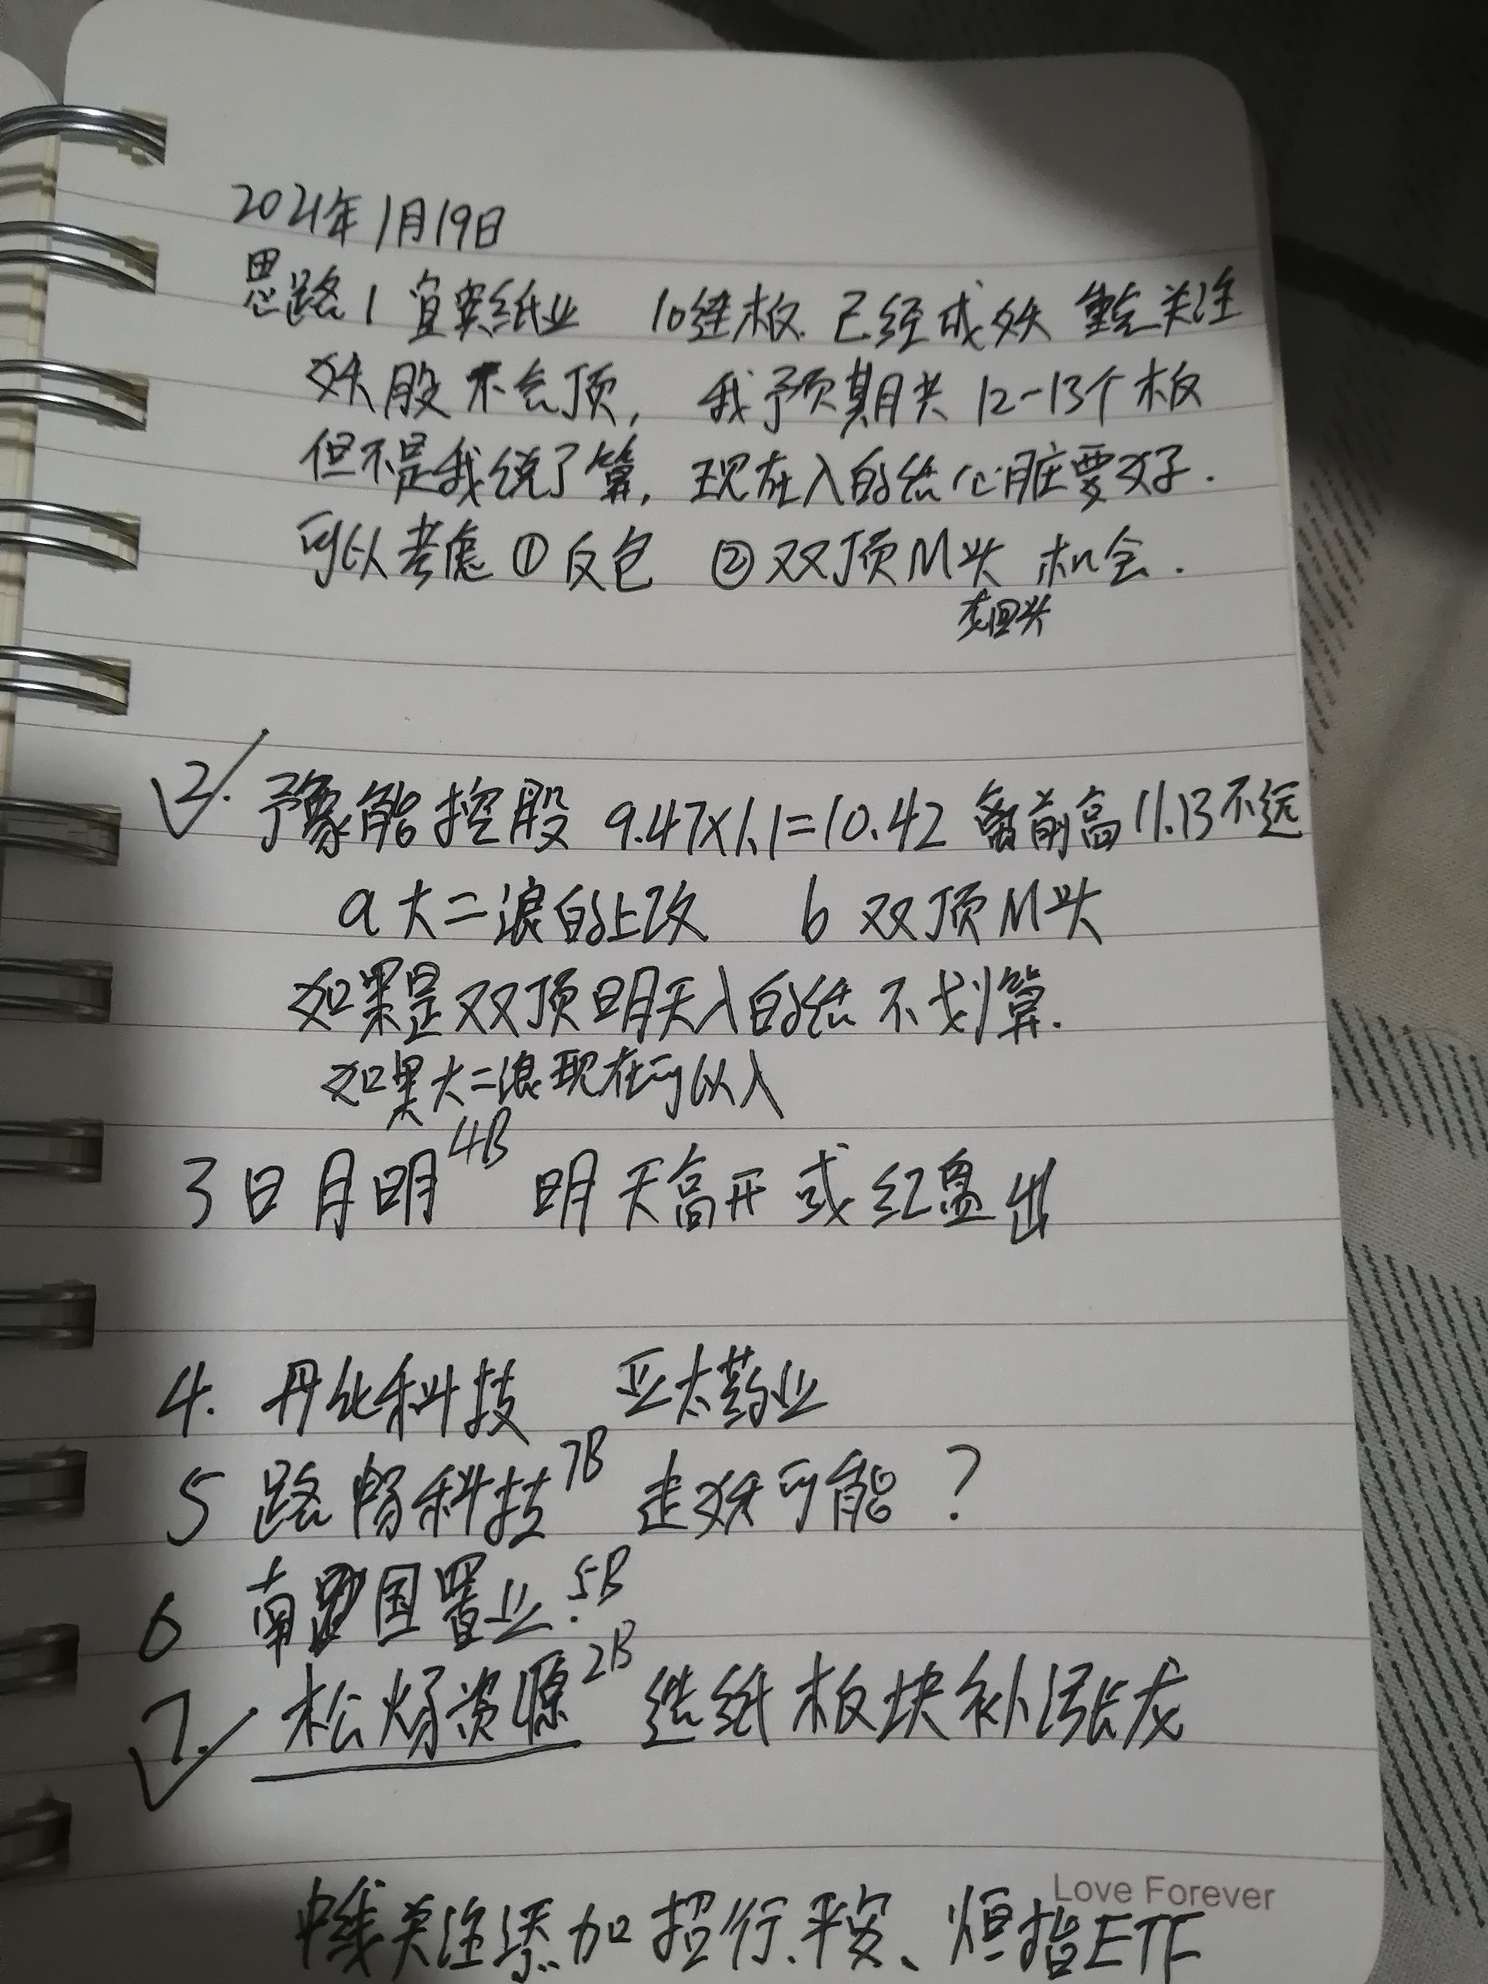 2021年1月19日
思路1 宜宾纸业 10连板 已经成妖 重点关注
妖股不会顶, 我予预期头12-13个板
但不是我说了算, 现在入的话心脏要好.
可以考虑①反包 ②双顶M头 机会.
龙回头
2. 予象能控股 9.47×1.1=10.42 离前高11.13不远
a大二浪的上攻 b 双顶M头
如果是双顶明天入的话不划算.
如果大二浪现在可以入
3日月明4B 明天高开或红盘出
4. 丹化科技 亚太药业
5 路畅科技7B 走妖可能?
6 南国置业.5B
7. 松炀资源2B 造纸板块补涨龙
Love Forever
中线关注添加招行、平安、恒指ETF